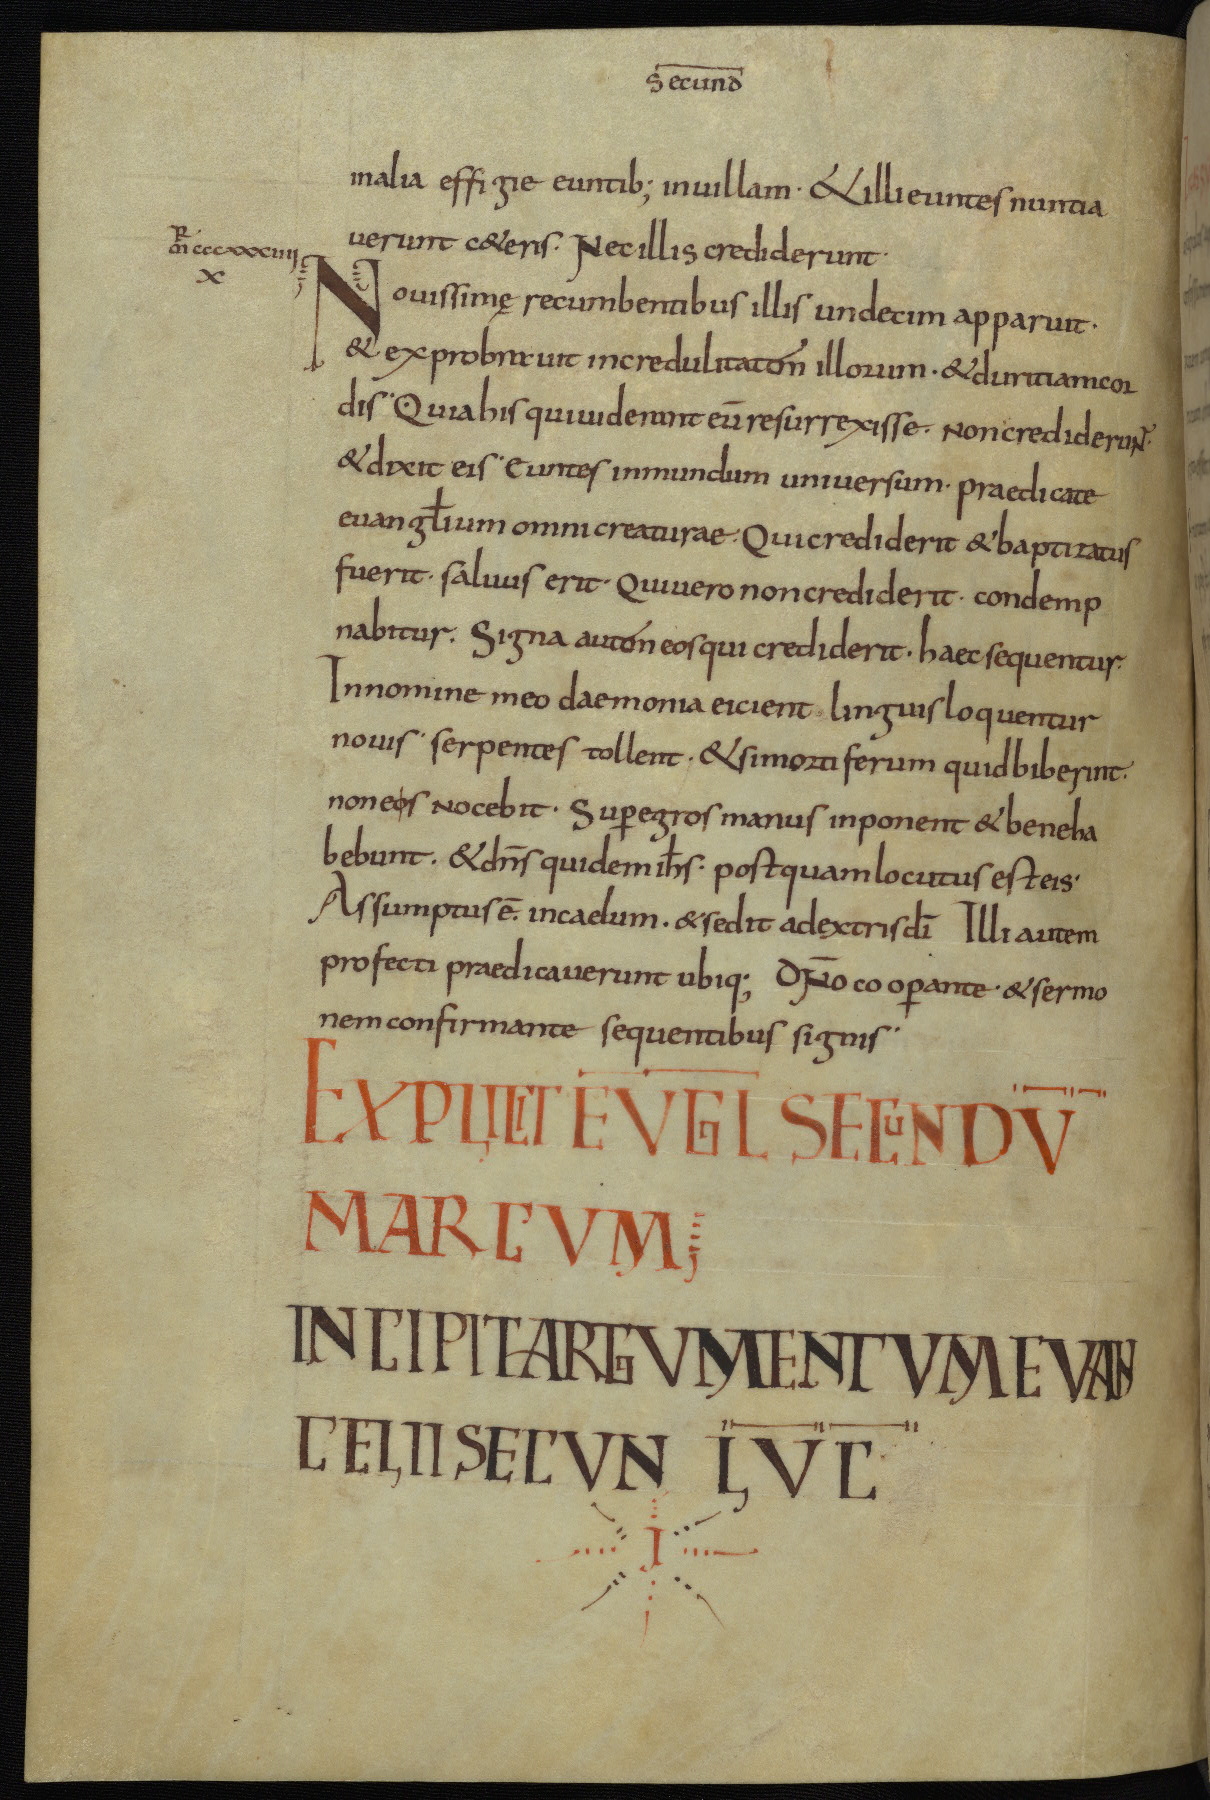 Secund̅
malia effigie euntib; inuillam · & illi euntes nuntia
uerunt c&eris · Nec illis crediderunt ·
R̅
m̅ cccxxxciiii
X
Nouissimę recumbentibus illis undecim apparuit ·
& exprobrauit incredulitatem illorum · & duritiam cor
dis · Quia his qui uiderunt eu̅ resurrexisse · Non crediderunt ·
& dixit eis · Euntes in mundum uniuersum · praedicate
euangl̅ium omni creaturae · Qui crediderit & baptizatus
fuerit · saluus erit · Qui uero non crediderit · condemp
nabitur · Signa autem eos qui crediderit · haec sequentur ·
In nomine meo daemonia eicient · linguis loquentur
nouis · serpentes tollent · & si mortiferum quid biberint ·
non eos nocebit · Sup̲ egros manus inponent & bene ha
bebunt · & dn̅s quidem ih̅s · postquam locutus est eis ·
Assumptus e̅ · in caelum · & sedit ad extris di̅ Illi autem
profecti praedicauerunt ubiq; DN̅o coop̲ante · & sermo
nem confirmante sequentibus signis ·
EXPLICIT EVGL̅ SECUNDV̅
MARCVM;
INCIPIT ARGVMENTVM EVAN
GELII SECVN LV̅C̅
I